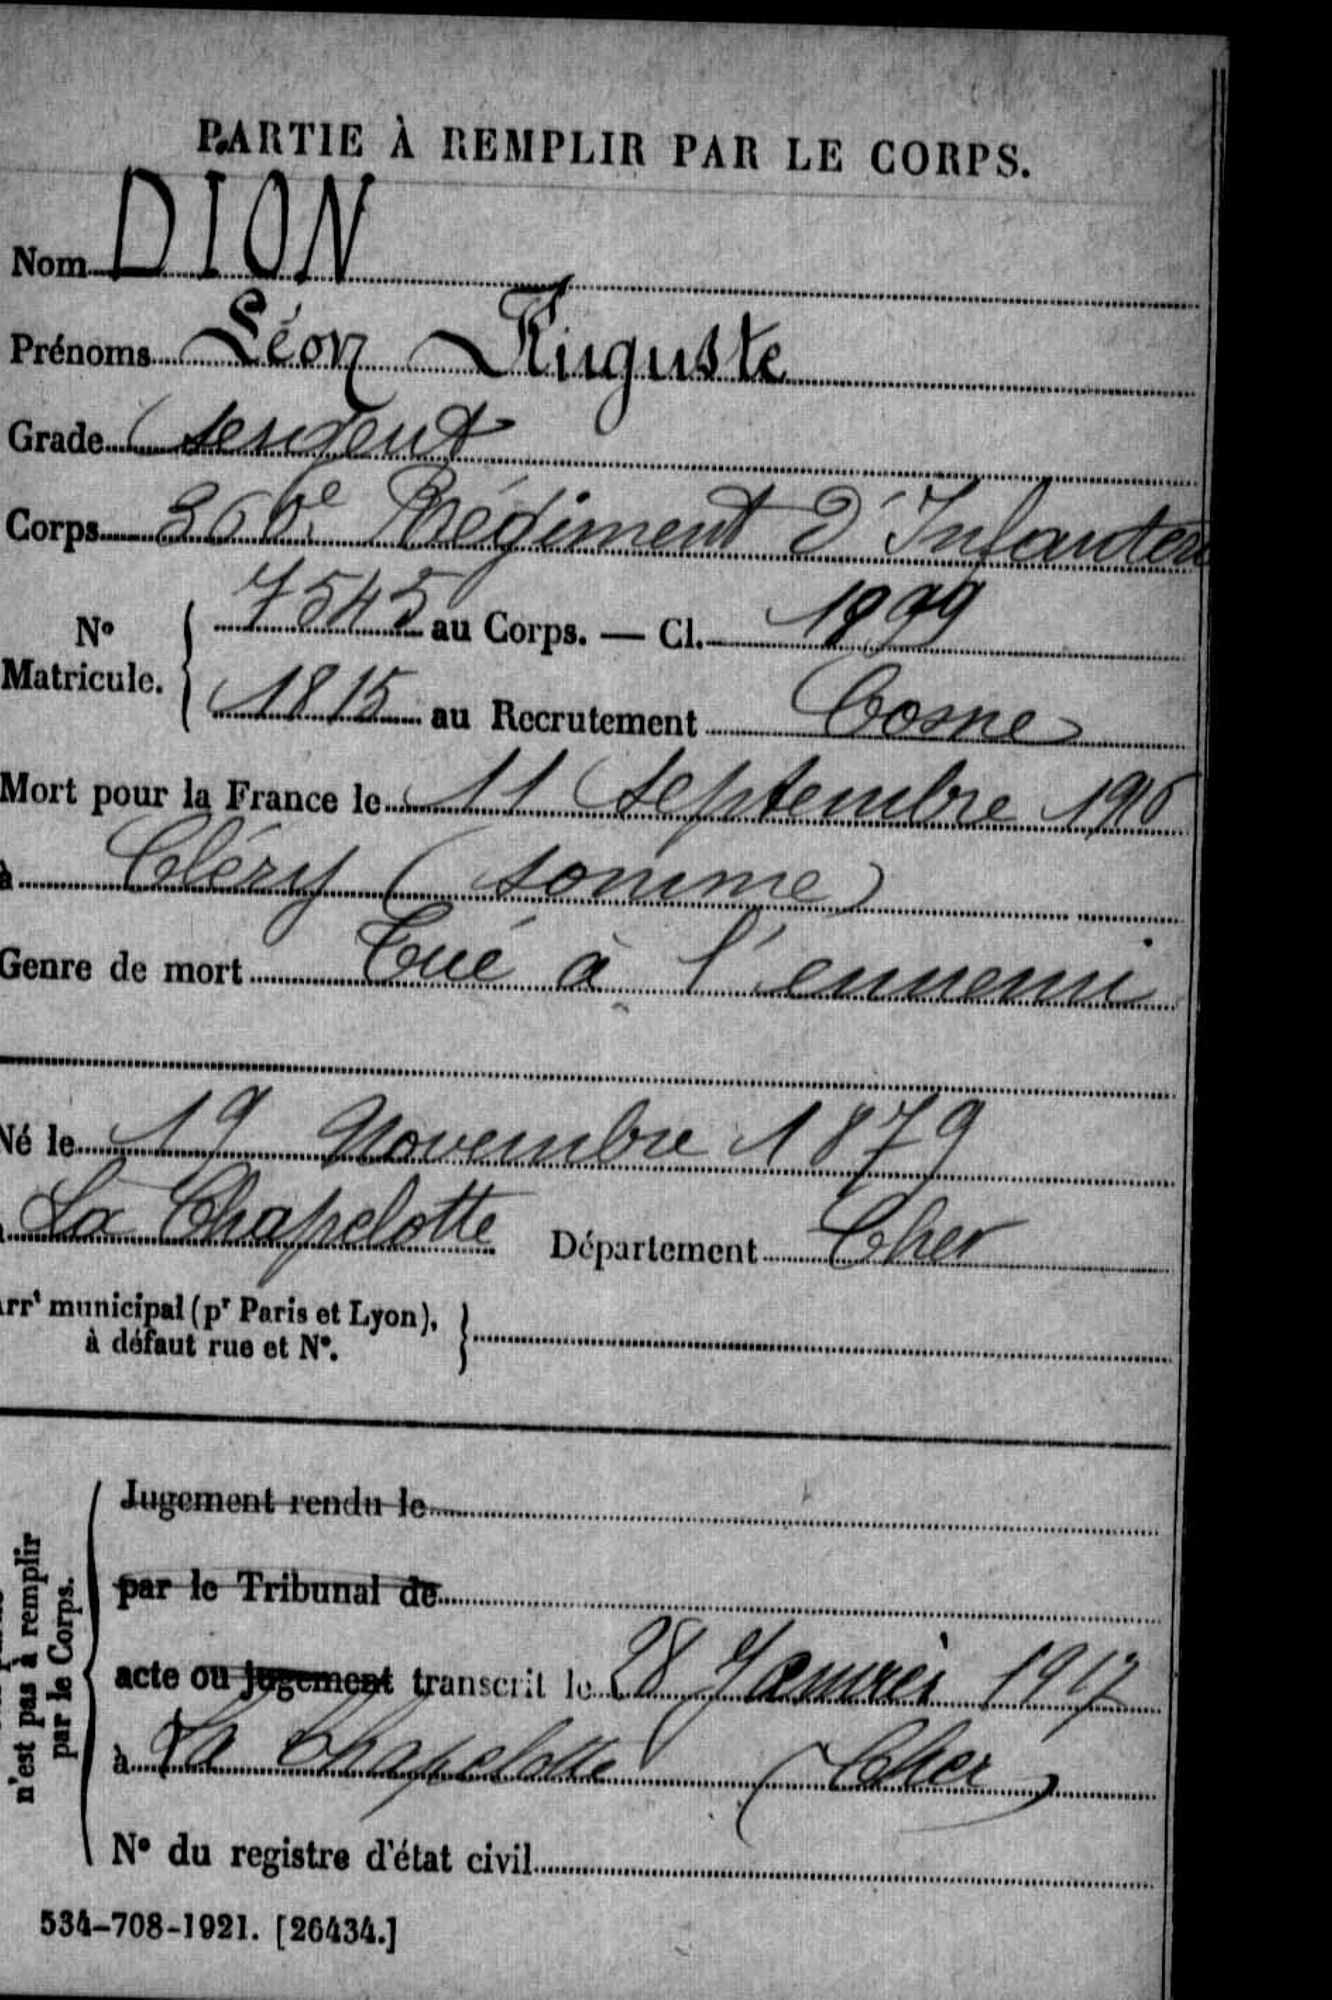 PARTIE À REMPLIR PAR LE CORPS.
Nom DION
Prénoms Léon Auguste
Grade Sergent
Corps 366e Régiment d'Infanterie
No Matricule. { 7545 au Corps. — Cl. 1899
1815 au Recrutement Cosne
Mort pour la France le 11 Septembre 1916
à Cléry (Somme)
Genre de mort Tué à l'ennemi
Né le 19 Novembre 1879
La Chapelotte Département Cher
Arrt municipal (pr Paris et Lyon), à défaut rue et No. }
n'est pas à remplir par le Corps.
Jugement rendu le
par le Tribunal de
acte ou jugement transcrit le 28 Janvier 1917
à La Chapelotte (Cher)
No du registre d'état civil
534-708-1921. [26434.]